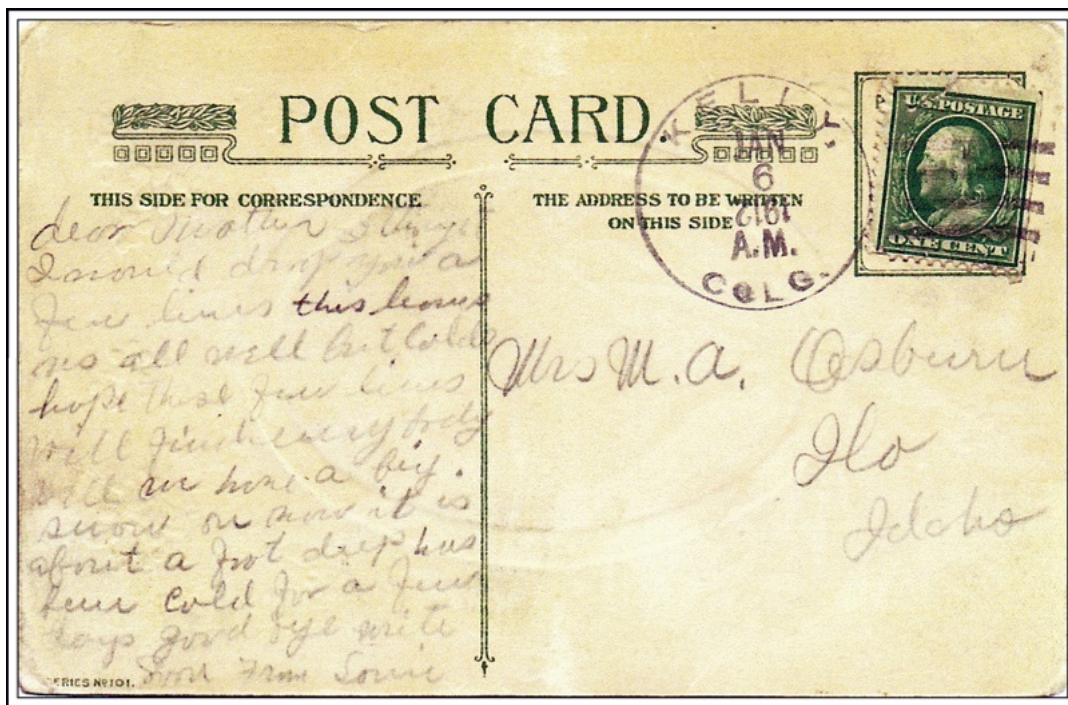 POST CARD.
THIS SIDE FOR CORRESPONDENCE
THE ADDRESS TO BE WRITTEN
ON THIS SIDE
KELLY,
JAN
6
1912
A.M.
COLO.
U.S. POSTAGE
ONE CENT
dear Mother I
I would drop you a
few lines this leaves
us all well but Colds
hope these few lines
will find every body
well we have a big
snow on now it is
about a foot deep has
been cold for a few
days good bye write
Soon From
Mrs M. A. Osburn
Ilo
Idaho
SERIES No 101.